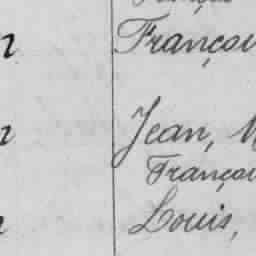 Françoi
Jean, M
Françoi
Louis,